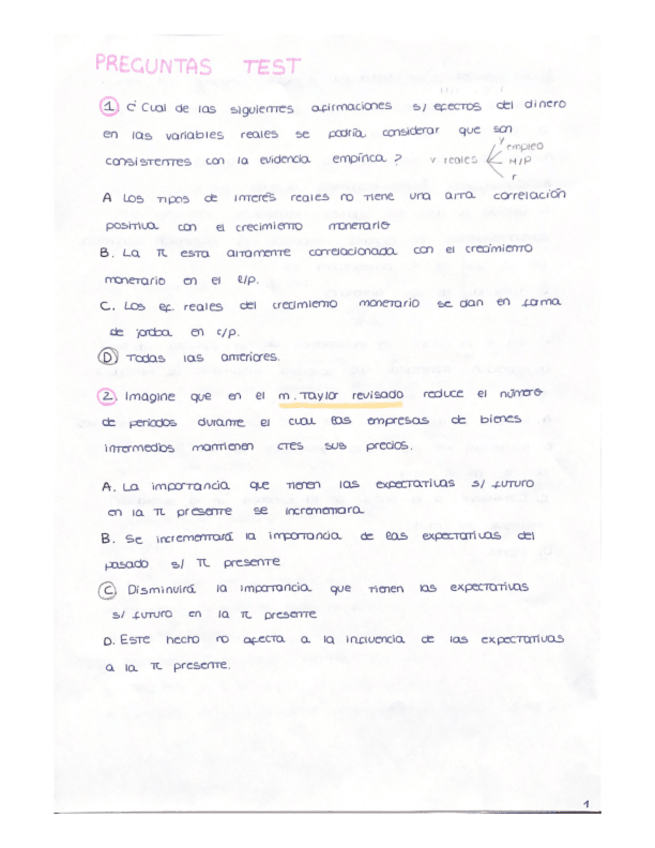 PREGUNTAS TEST
1. ¿Cual de las siguientes afirmaciones s/ efectos del dinero
en las variables reales se podría considerar que son
consistentes con la evidencia empírica? v reales
Y
empleo
M/P
r
A Los tipos de interés reales no tiene una alta correlación
positiva con el crecimiento monetario
B. La π esta altamente correlacionada con el crecimiento
monetario en el l/p.
C. Los ef. reales del crecimiento monetario se dan en forma
de joroba en c/p.
D Todas las anteriores.
2. Imagine que en el m. Taylor revisado reduce el número
de periodos durante el cual las empresas de bienes
intermedios mantienen ctes sus precios.
A. La importancia que tienen las expectativas s/ futuro
en la π presente se incrementara
B. Se incrementará la importancia de las expectativas del
pasado s/ π presente
C. Disminuirá la importancia que tienen las expectativas
s/ futuro en la π presente
D. Este hecho no afecta a la influencia de las expectativas
a la π presente.
1